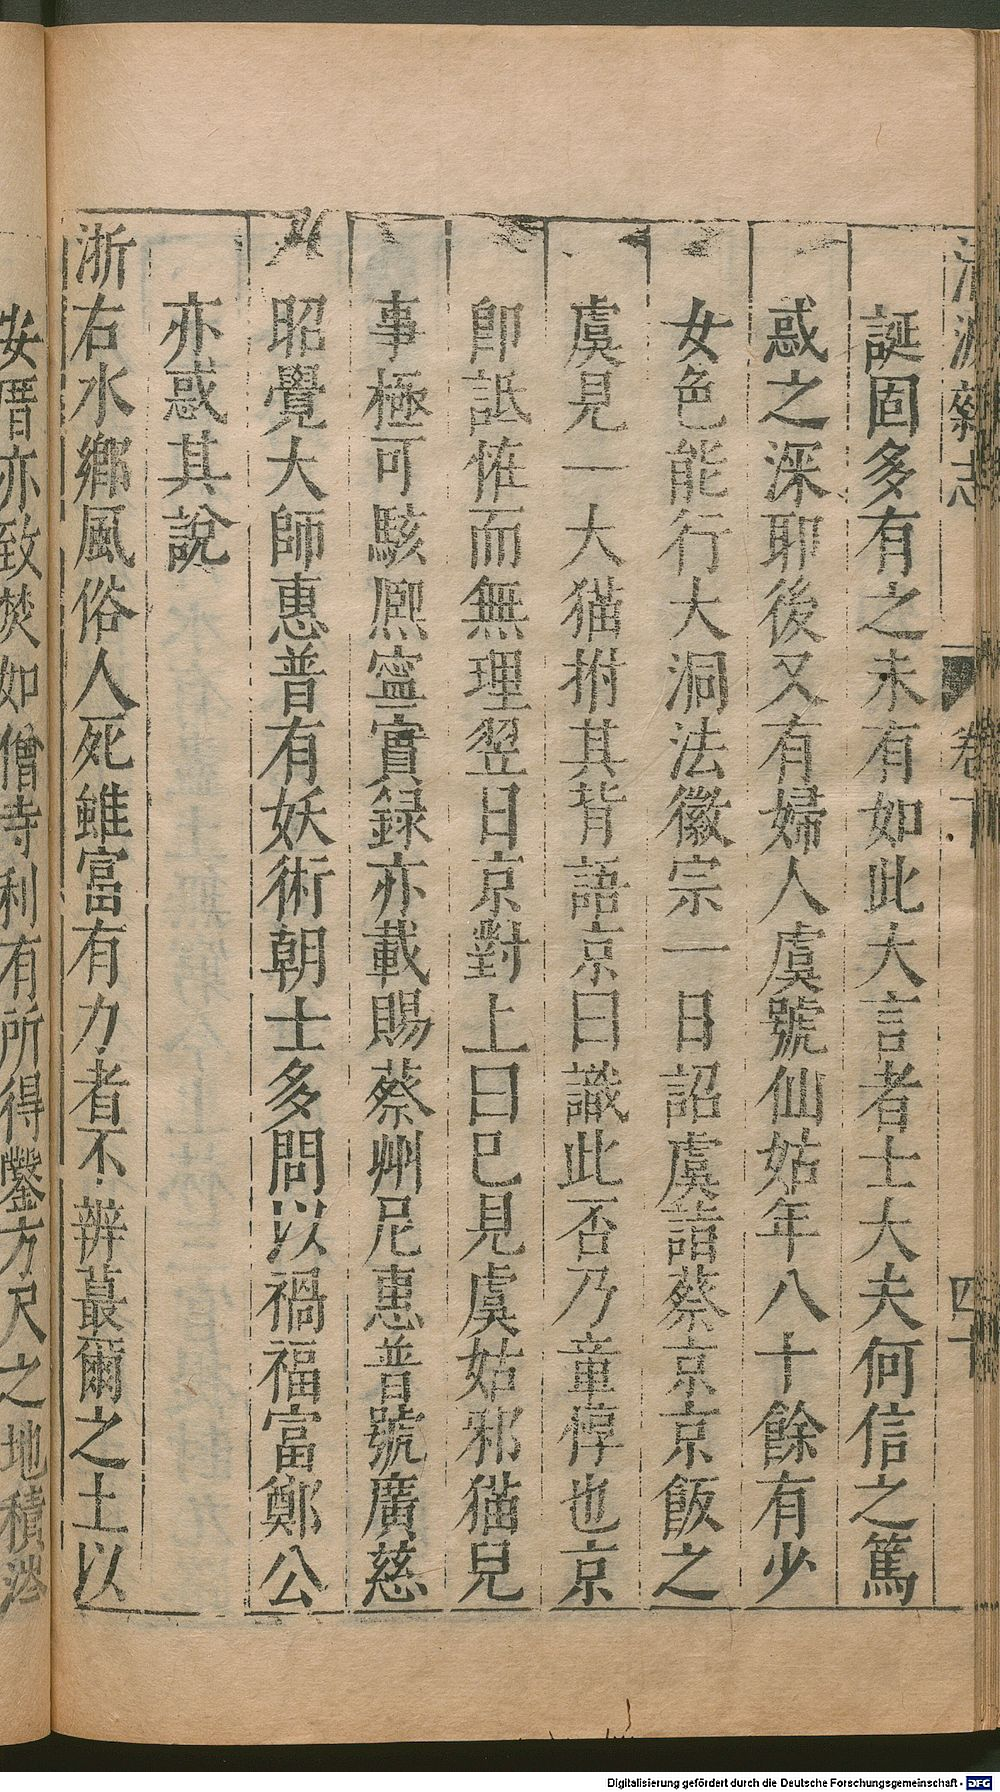 清波雜志 卷下 四十
誕固多有之未有如此大言者士大夫何信之篤
惑之深耶後又有婦人虞號仙姑年八十餘有少
女色能行大洞法徽宗一日詔虞詣蔡京京飯之
虞見一大猫拊其背語京曰識此否乃章惇也京
卽詆恠而無理翌日京對上曰已見虞姑邪猫兒
事極可駭熈寧實録亦載賜蔡州尼惠普號廣慈
昭覺大師惠普有妖術朝士多問以禍福富鄭公
亦惑其說
浙右水鄉風俗人死雖富有力者不辨蕞爾之土以
安厝亦致焚如僧寺利有所得鑿方尺之地積涔
Digitalisierung gefördert durch die Deutsche Forschungsgemeinschaft - DFG